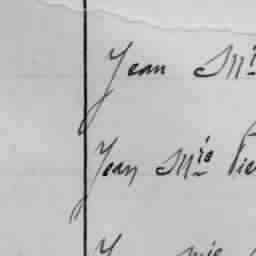 Jean M
Jean Mie Pie